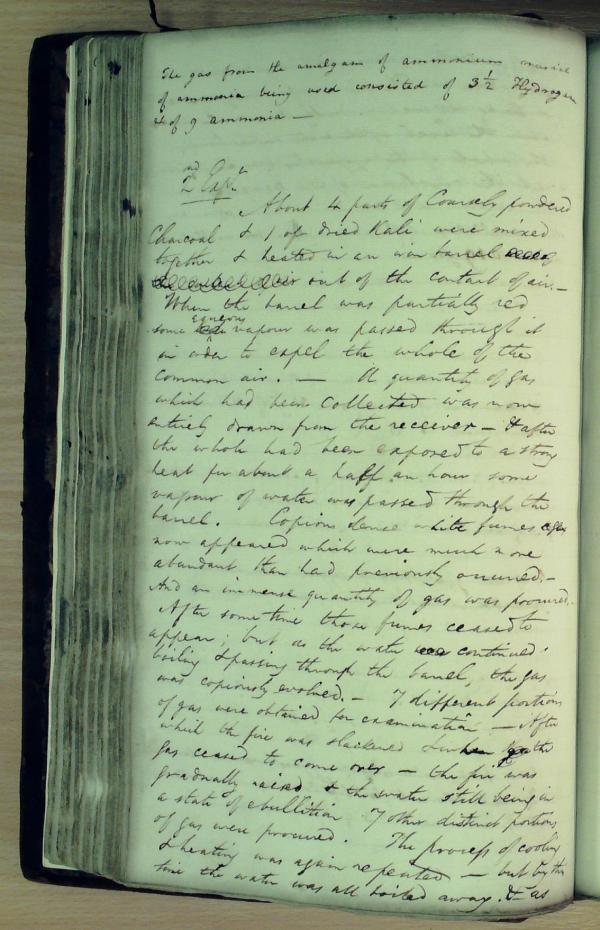 The gas from the amalgam of ammonium muriate
of ammonia being used consisted of 3 1/2 Hydrogen
& of 9 ammonia —
2nd Expt.
About 4 parts of Coarsely powdered
Charcoal & 1 of dried Kali were mixed
together & heated in an iron barrel
out of the contact of air. —
When the barrel was partially red
some aqueous vapour was passed through it
in order to expel the whole of the
common air. — A quantity of gas
which had been collected was now
entirely drawn from the receiver — & after
the whole had been exposed to a strong
heat for about a half an hour some
vapour of water was passed through the
barrel. Copious dense white fumes
now appeared which were much more
abundant than had previously occurred. —
And an immense quantity of gas was procured. —
After some time those fumes ceased to
appear; but as the water continued
boiling & passing through the barrel, the gas
was copiously evolved. — 7 different portions
of gas were obtained for examination — After
which the fire was slackened & when the
gas ceased to come over — the fire was
gradually raised & the water still being in
a state of ebullition 7 other distinct portions
of gas were procured. The process of cooling
& heating was again repeated — but by this
time the water was all boiled away. & as